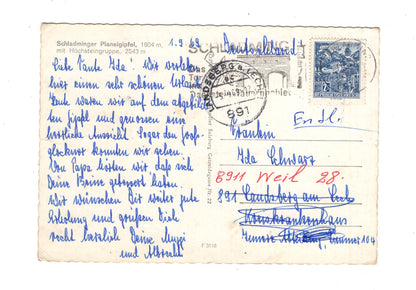 Schladminger Plansigipfel, 1804 m,
mit Höchsteingruppe, 2543 m
1.9.69
Liebe Tante Ida! Wir verleben
hier einen sehr schönen Urlaub.
Heute waren wir auf dem abgebilde-
ten Gipfel und genossen eine
herrliche Aussicht. Sogar den Groß-
glockner konnten wir sehen.
Von Papa hörten wir, daß sich
Deine Beine gebessert haben.
Wir wünschen Dir weiter gute
Erholung und grüßen Dich
recht herzlich Deine
und Albrecht
Deutschland
SCHLADMING
LANDSBERG
891
Fräulein
Ida Schwarz
8911 Weil 28.
891 Landsberg am Lech
Kreiskrankenhaus
Zimmer 104